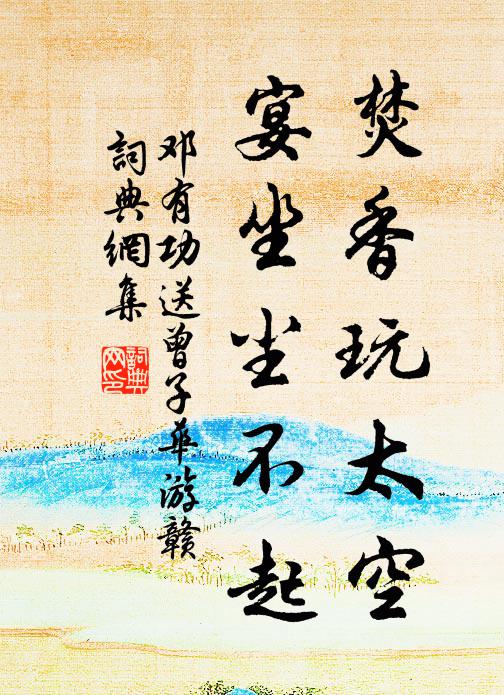 焚香玩太空
宴坐尘不起
邓有功送曾子华游赣
詞典網集
詞典
网印